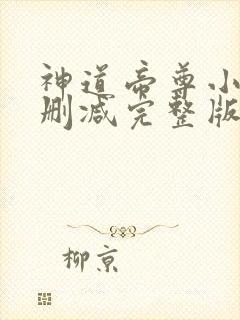 神道帝尊小
删减完整版
柳京